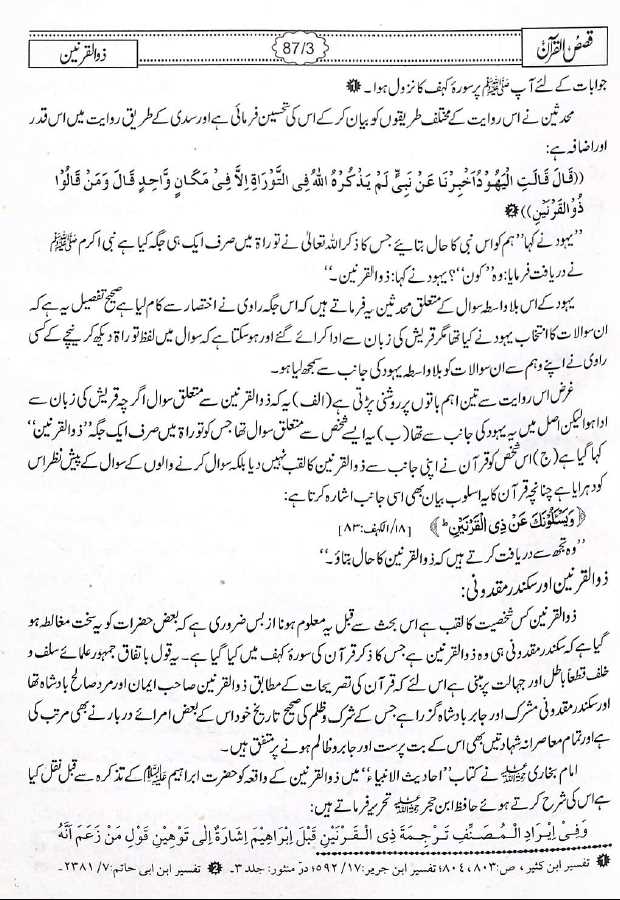 قصص القرآن
87/3
ذوالقرنین
جوابات کے لئے آپ ﷺ پر سورۂ کہف کا نزول ہوا۔ ❶
محدثین نے اس روایت کے مختلف طریقوں کو بیان کر کے اس کی تحسین فرمائی ہے اور سدی کے طریق روایت میں اس قدر
اور اضافہ ہے:
((قَالَ قَالَتِ الْيَهُوْدُ اَخْبِرْنَا عَنْ نَبِيٍّ لَمْ يَذْكُرْهُ اللهُ فِي التَّوْرَاةِ اِلَّا فِيْ مَكَانٍ وَّاحِدٍ قَالَ وَمَنْ قَالُوْا
ذُوالْقَرْنَيْنِ)) ❷
’’یہود نے کہا ’’ہم کو اس نبی کا حال بتایئے جس کا ذکر اللہ تعالیٰ نے توراۃ میں صرف ایک ہی جگہ کیا ہے نبی اکرم ﷺ
نے دریافت فرمایا: وہ ’’کون‘‘؟ یہود نے کہا: ذوالقرنین۔‘‘
یہود کے اس بلا واسطہ سوال کے متعلق محدثین یہ فرماتے ہیں کہ اس جگہ راوی نے اختصار سے کام لیا ہے صحیح تفصیل یہ ہے کہ
ان سوالات کا انتخاب یہود نے کیا تھا مگر قریش کی زبان سے ادا کرائے گئے اور ہو سکتا ہے کہ سوال میں لفظ توراۃ دیکھ کر نیچے کے کسی
راوی نے اپنے وہم سے ان سوالات کو بلا واسطہ یہود کی جانب سے سمجھ لیا ہو۔
غرض اس روایت سے تین اہم باتوں پر روشنی پڑتی ہے (الف) یہ کہ ذوالقرنین سے متعلق سوال اگرچہ قریش کی زبان سے
ادا ہوا لیکن اصل میں یہ یہود کی جانب سے تھا (ب) یہ ایسے شخص سے متعلق سوال تھا جس کو توراۃ میں صرف ایک جگہ ’’ذوالقرنین‘‘
کہا گیا ہے (ج) اس شخص کو قرآن نے اپنی جانب سے ذوالقرنین کا لقب نہیں دیا بلکہ سوال کرنے والوں کے سوال کے پیش نظر اس
کو دہرایا ہے چنانچہ قرآن کا یہ اسلوب بیان بھی اسی جانب اشارہ کرتا ہے:
﴿وَيَسْـَٔلُوْنَكَ عَنْ ذِي الْقَرْنَيْنِ ؕ﴾ [١٨/الكهف:٨٣]
’’وہ تجھ سے دریافت کرتے ہیں کہ ذوالقرنین کا حال بتاؤ۔‘‘
ذوالقرنین اور سکندر مقدونی:
ذوالقرنین کس شخصیت کا لقب ہے اس بحث سے قبل یہ معلوم ہونا از بس ضروری ہے کہ بعض حضرات کو یہ سخت مغالطہ ہو
گیا ہے کہ سکندر مقدونی ہی وہ ذوالقرنین ہے جس کا ذکر قرآن کی سورۂ کہف میں کیا گیا ہے۔ یہ قول باتفاق جمہور علمائے سلف و
خلف قطعاً باطل اور جہالت پر مبنی ہے اس لئے کہ قرآن کی تصریحات کے مطابق ذوالقرنین صاحب ایمان اور مرد صالح بادشاہ تھا
اور سکندر مقدونی مشرک اور جابر بادشاہ گزرا ہے جس کے شرک و ظلم کی صحیح تاریخ خود اس کے بعض امرائے دربار نے بھی مرتب کی
ہے اور تمام معاصرانہ شہادتیں بھی اس کے بت پرست اور جابر و ظالم ہونے پر متفق ہیں۔
امام بخاری رحمۃ اللہ علیہ نے کتاب ’’احادیث الانبیاء‘‘ میں ذوالقرنین کے واقعہ کو حضرت ابراہیم علیہ السلام کے تذکرہ سے قبل نقل کیا
ہے اس کی شرح کرتے ہوئے حافظ ابن حجر رحمۃ اللہ علیہ تحریر فرماتے ہیں:
وَفِيْ اِيْرَادِ الْمُصَنِّفِ تَرْجَمَةَ ذِي الْقَرْنَيْنِ قَبْلَ اِبْرَاهِيْمَ اِشَارَةٌ اِلٰى تَوْهِيْنِ قَوْلِ مَنْ زَعَمَ اَنَّهٗ
❶ تفسیر ابن کثیر، ص: ۸۰۳، ۸۰۴؛ تفسیر ابن جریر: ۱۷/ ۵۹۲؛ درّ منثور: جلد ۳۔ ❷ تفسیر ابن ابی حاتم: ۷/ ۲۳۸۱۔